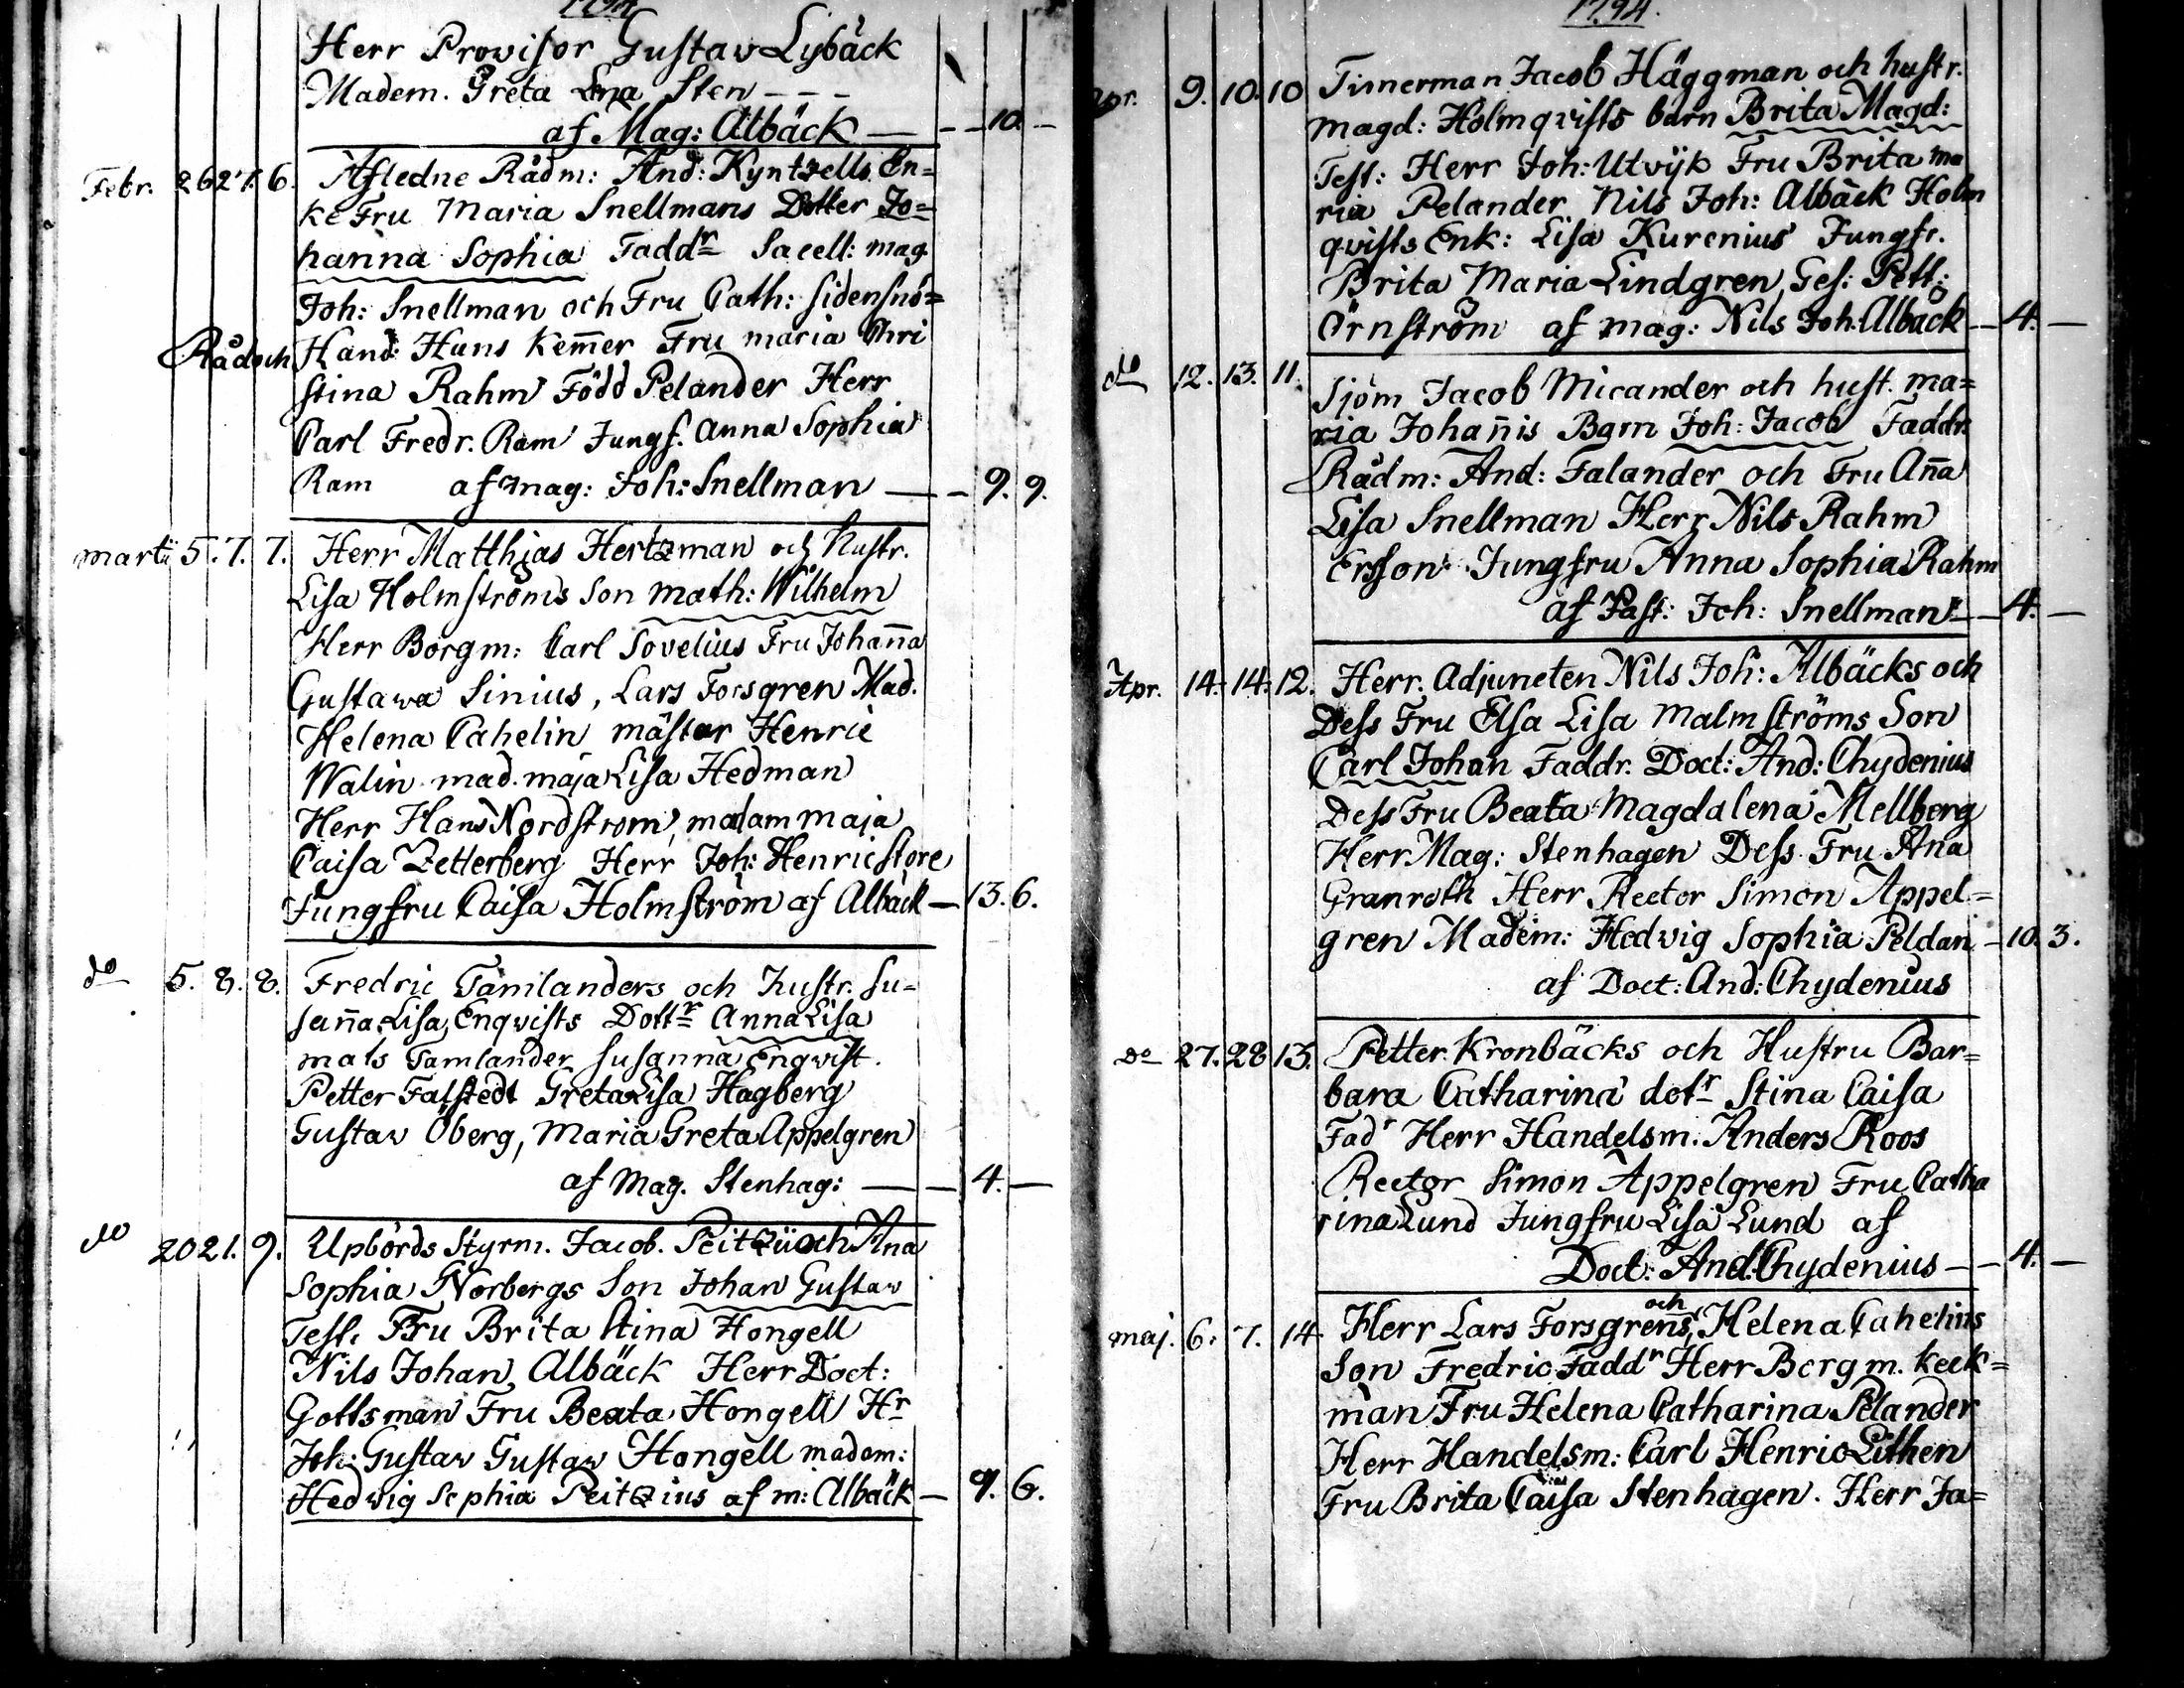 1794
Herr Provisor Gustav Lybäck
Madem. Greta Lena Sten - - -
af Mag: Albäck — - - 10. -
Febr. 26 27. 6. Afledne Rådm: And: Kyntzells En=
ke Fru Maria Snellmans Dotter Jo=
hanna Sophia Faddr Sacell: mag.
Joh: Snellman och Fru Cath: Sidensnö=
Råd och Hand: Hans Kem̄er Fru maria Chri
stina Rahm Född Pelander Herr
Carl Fredr. Ram Jungf. Anna Sophia
Ram af mag: Joh: Snellman — - 9. 9.
martii 5. 7. 7. Herr Matthias Hertzman och hustr.
Lisa Holmströms Son math: Wilhelm
Herr Borgm: Carl Sovelius Fru Johan̄a
Gustava Sinius, Lars Forsgren Mad.
Helena Cahelin mäster Henric
Walin mad. maja Lisa Hedman
Herr Hans Nordstrom, madam maja
Caisa Zetterberg Herr Joh: Henric Store
Jungfru Caisa Holmström af Albäck — 13. 6.
do 5. 8. 8. Fredric Tamlanders och hustr. Su=
san̄a Lisa Enqvists Dottr Anna Lisa
mats Tamlander Susanna Enqvist.
Petter Falstedt Greta Lisa Hagberg
Gustav Öberg, Maria Greta Appelgren
af Mag. Stenhag: — - 4. —
do 20 21. 9. Upbörds Styrm. Jacob. Peitzii och Ana
Sophia Norbergs Son Johan Gustav
Test. Fru Brita Stina Hongell
Nils Johan Albäck Herr Doct:
Gottsman Fru Beata Hongell Hr
Joh: Gustav Gustav Hongell madem:
Hedvig Sophia Peitzius af m: Albäck — 9. 6.
1794.
Apr. 9. 10. 10 Timerman Jacob Häggman och hustr.
Magd: Holmqvists barn Brita Magd:
Test: Herr Joh: Utvijk Fru Brita ma
ria Pelander Nils Joh: Albäck Holm
qvists Enk: Lisa Kurenius Jungfr.
Brita Maria Lindgren, Ges: Pett:
Örnström af mag: Nils Joh. Albäck — 4. —
do 12. 13. 11. Sjöm Jacob Micander och hust. ma=
ria Johan̄is Barn Joh: Jacob Faddr.
Rådm: And: Falander och Fru An̄a
Lisa Snellman Herr Nils Rahm
Ersson Jungfru Anna Sophia Rahm
af Past: Joh: Snellman — 4. —
Apr. 14. 14. 12. Herr. Adjuncten Nils Joh: Albäcks och
Dess Fru Elsa Lisa Malmströms Son
Carl Johan Faddr. Doct: And: Chydenius
Dess Fru Beata Magdalena Mellberg
Herr Mag: Stenhagen Dess Fru Ana
Granroth Herr Rector Simon Appel=
gren Madem: Hedvig Sophia Peldan - 10. 3.
af Doct: And: Chydenius
Do 27. 28 13. Petter Kronbäcks och Hustru Bar=
bara Catharina dotr Stina Caisa
Fadr Herr Handelsm: Anders Roos
Rector Simon Appelgren Fru Catha
rina Lund Jungfru Lisa Lund af
Doct: And: Chydenius — - 4. —
maj. 6. 7. 14. Herr Lars Forsgrens och Helena Cahelins
Son Fredric Faddr Herr Borgm. Keck=
man Fru Helena Catharina Pelander
Herr Handelsm: Carl Henric Lithen
Fru Brita Caisa Stenhagen. Herr Ja=